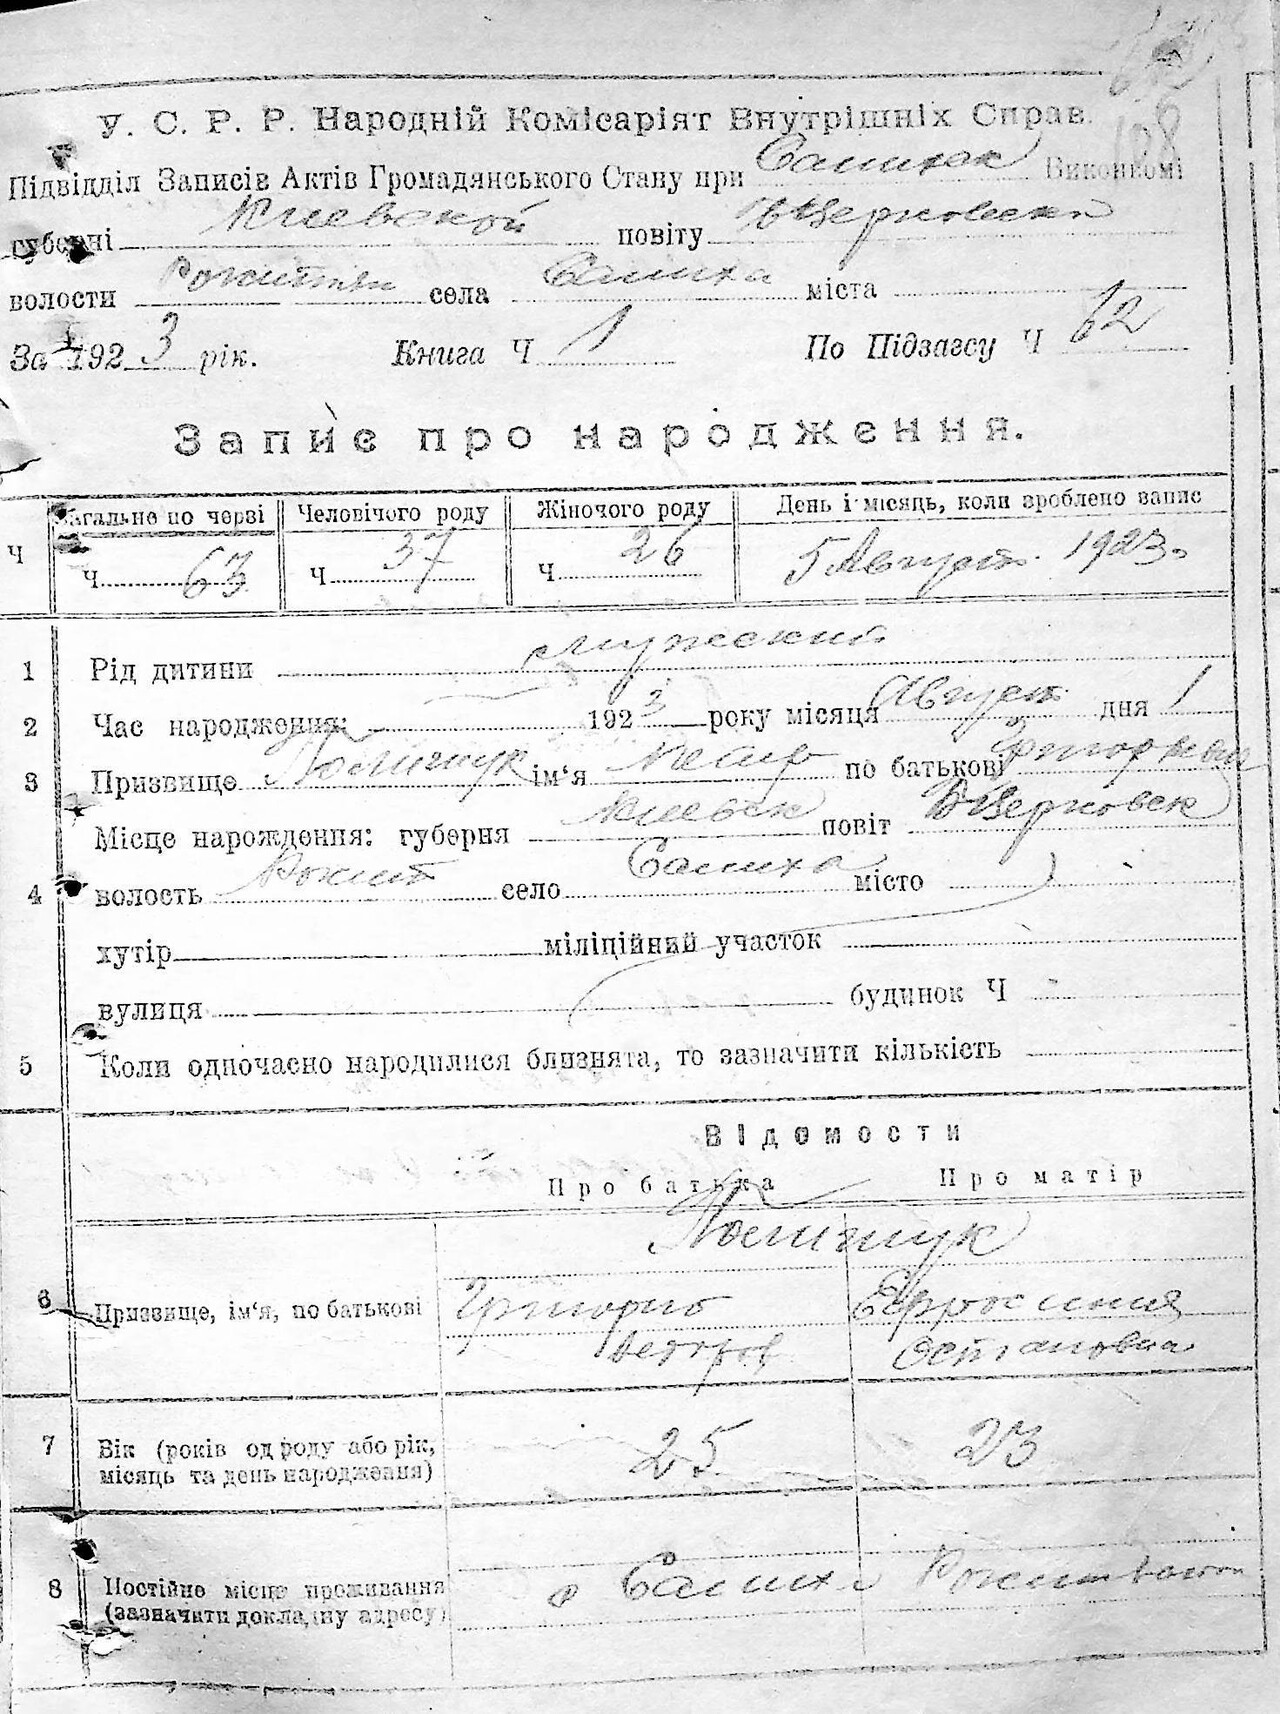 У. С. Р. Р. Народній Комісаріят Внутрішніх Справ.
108
Підвідділ Записів Актів Громадянського Стану при Виконкомі
губерні Киевской повіту БЦерковск
волости села міста
За 1923 рік. Книга Ч 1 По Підзагсу Ч 62
Запис про народження.
Ч Загальне по черзі Человічого роду Жіночого роду День і місяць, коли зроблено запис
Ч 63 Ч 37 Ч 26 5 Август 1923
1 Рід дитини Мужеский
2 Час народження 1923 року місяця Август дня 1
3 Призвище Полищук ім'я по батькові
Місце нарождення: губерня Киевск повіт БЦерковск
4 волость Рокит село місто
хутір міліційний участок
вулиця будинок Ч
5 Коли одночасно народилися близнята, то зазначити кількість
Відомости
Про батька Про матір
Полищук
6 Призвище, ім'я, по батькові Григорий Ефросиния
Петров Остаповна
7 Вік (років од роду або рік, 25 23
місяць та день народження)
8 Постійне місце проживання
(зазначити докладну адресу)